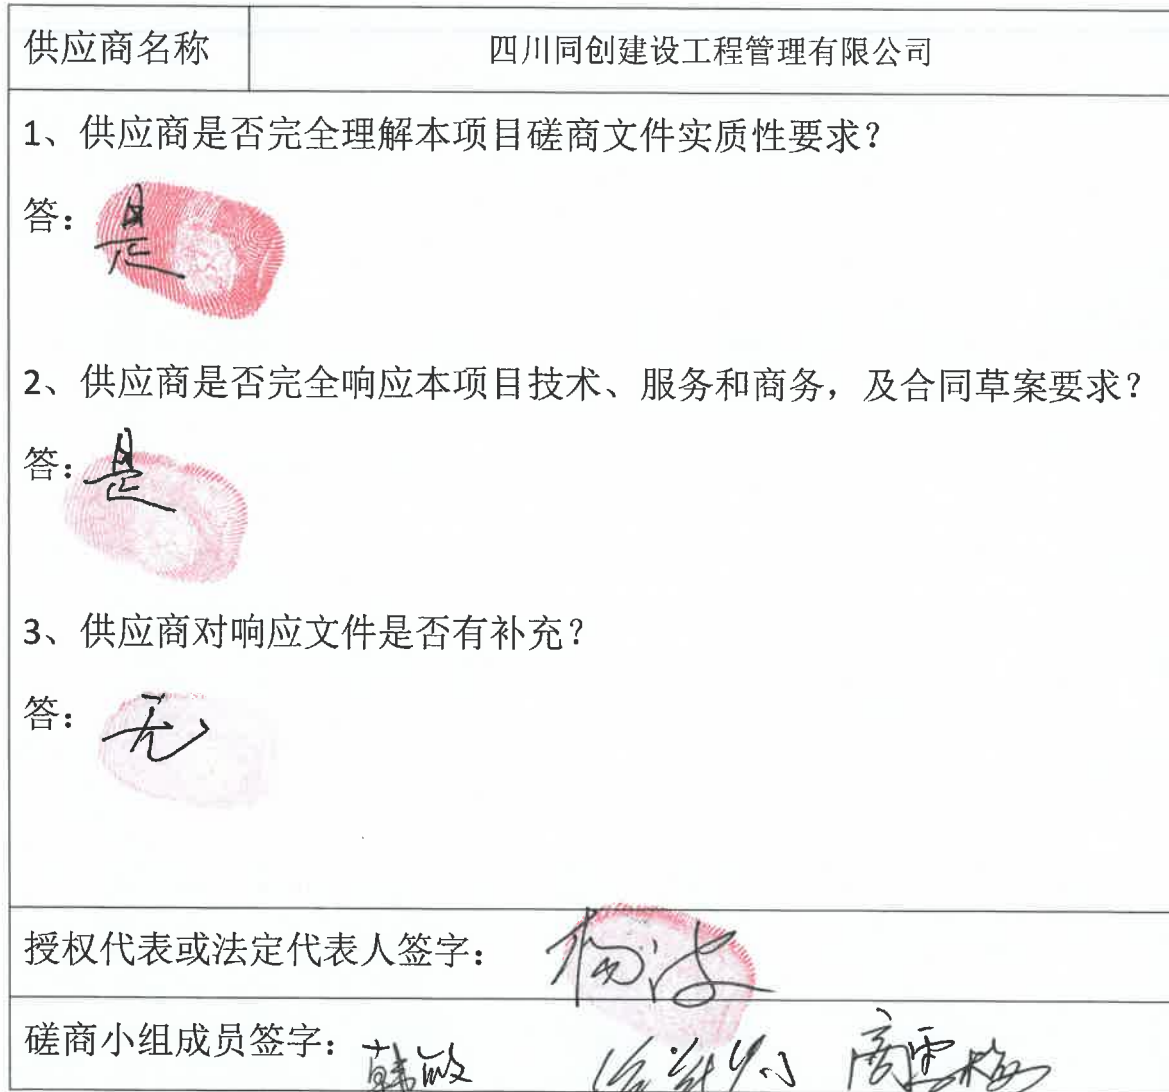 供应商名称 四川同创建设工程管理有限公司
1、供应商是否完全理解本项目磋商文件实质性要求？
答：是
2、供应商是否完全响应本项目技术、服务和商务，及合同草案要求？
答：是
3、供应商对响应文件是否有补充？
答：无
授权代表或法定代表人签字：杨波
磋商小组成员签字：韩敏